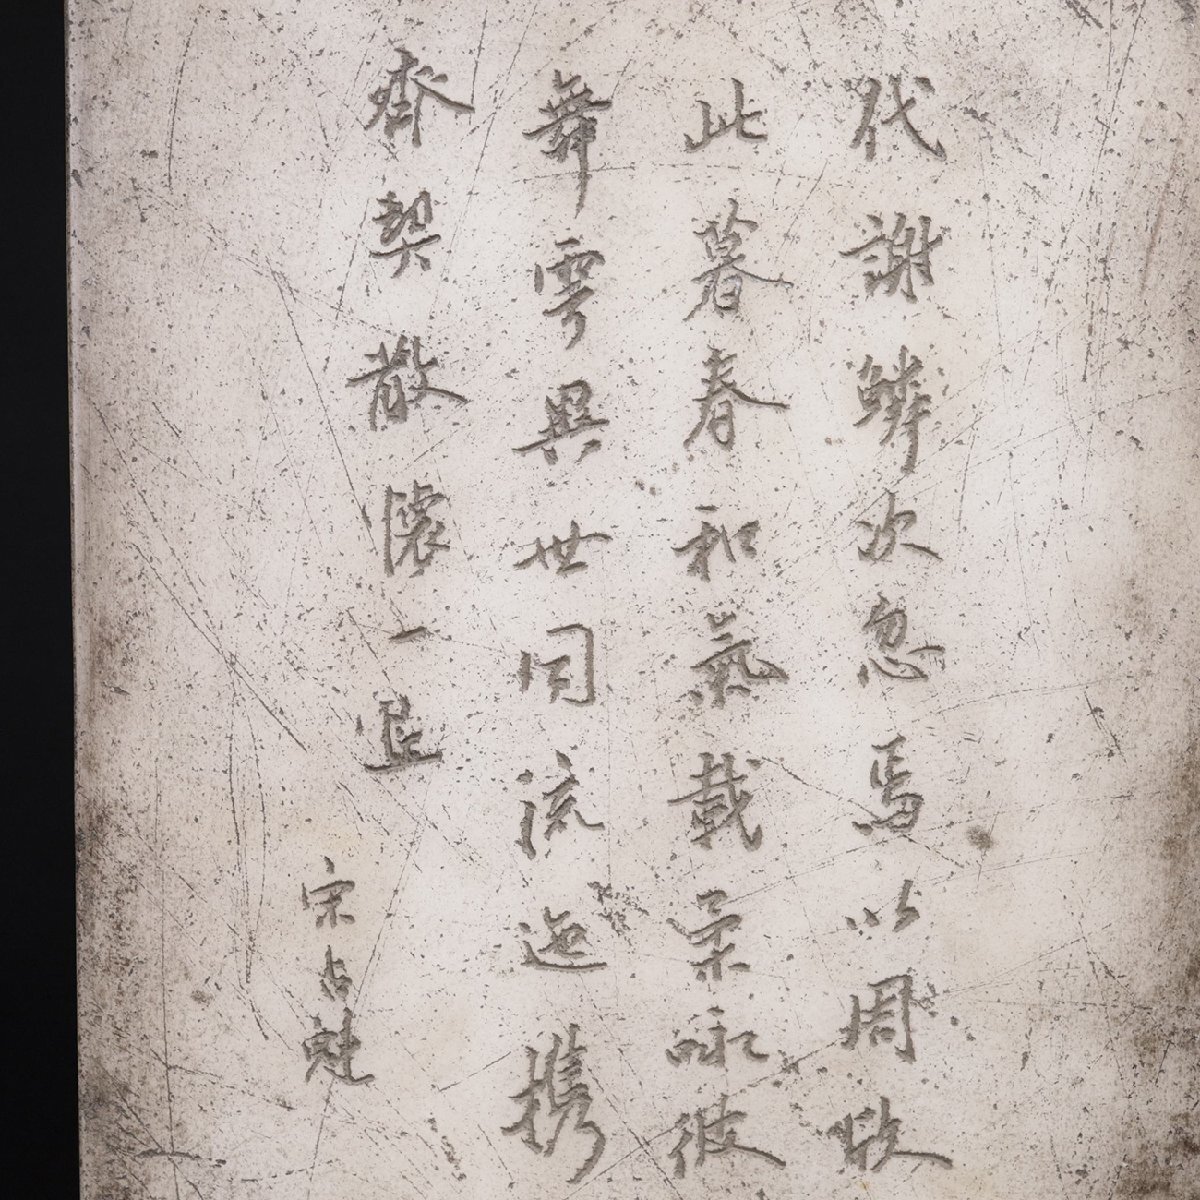 代謝鱗次忽焉以周欣
此暮春和氣載柔詠彼
舞雩異世同流迺携
齊契散懷一丘
宋占魁